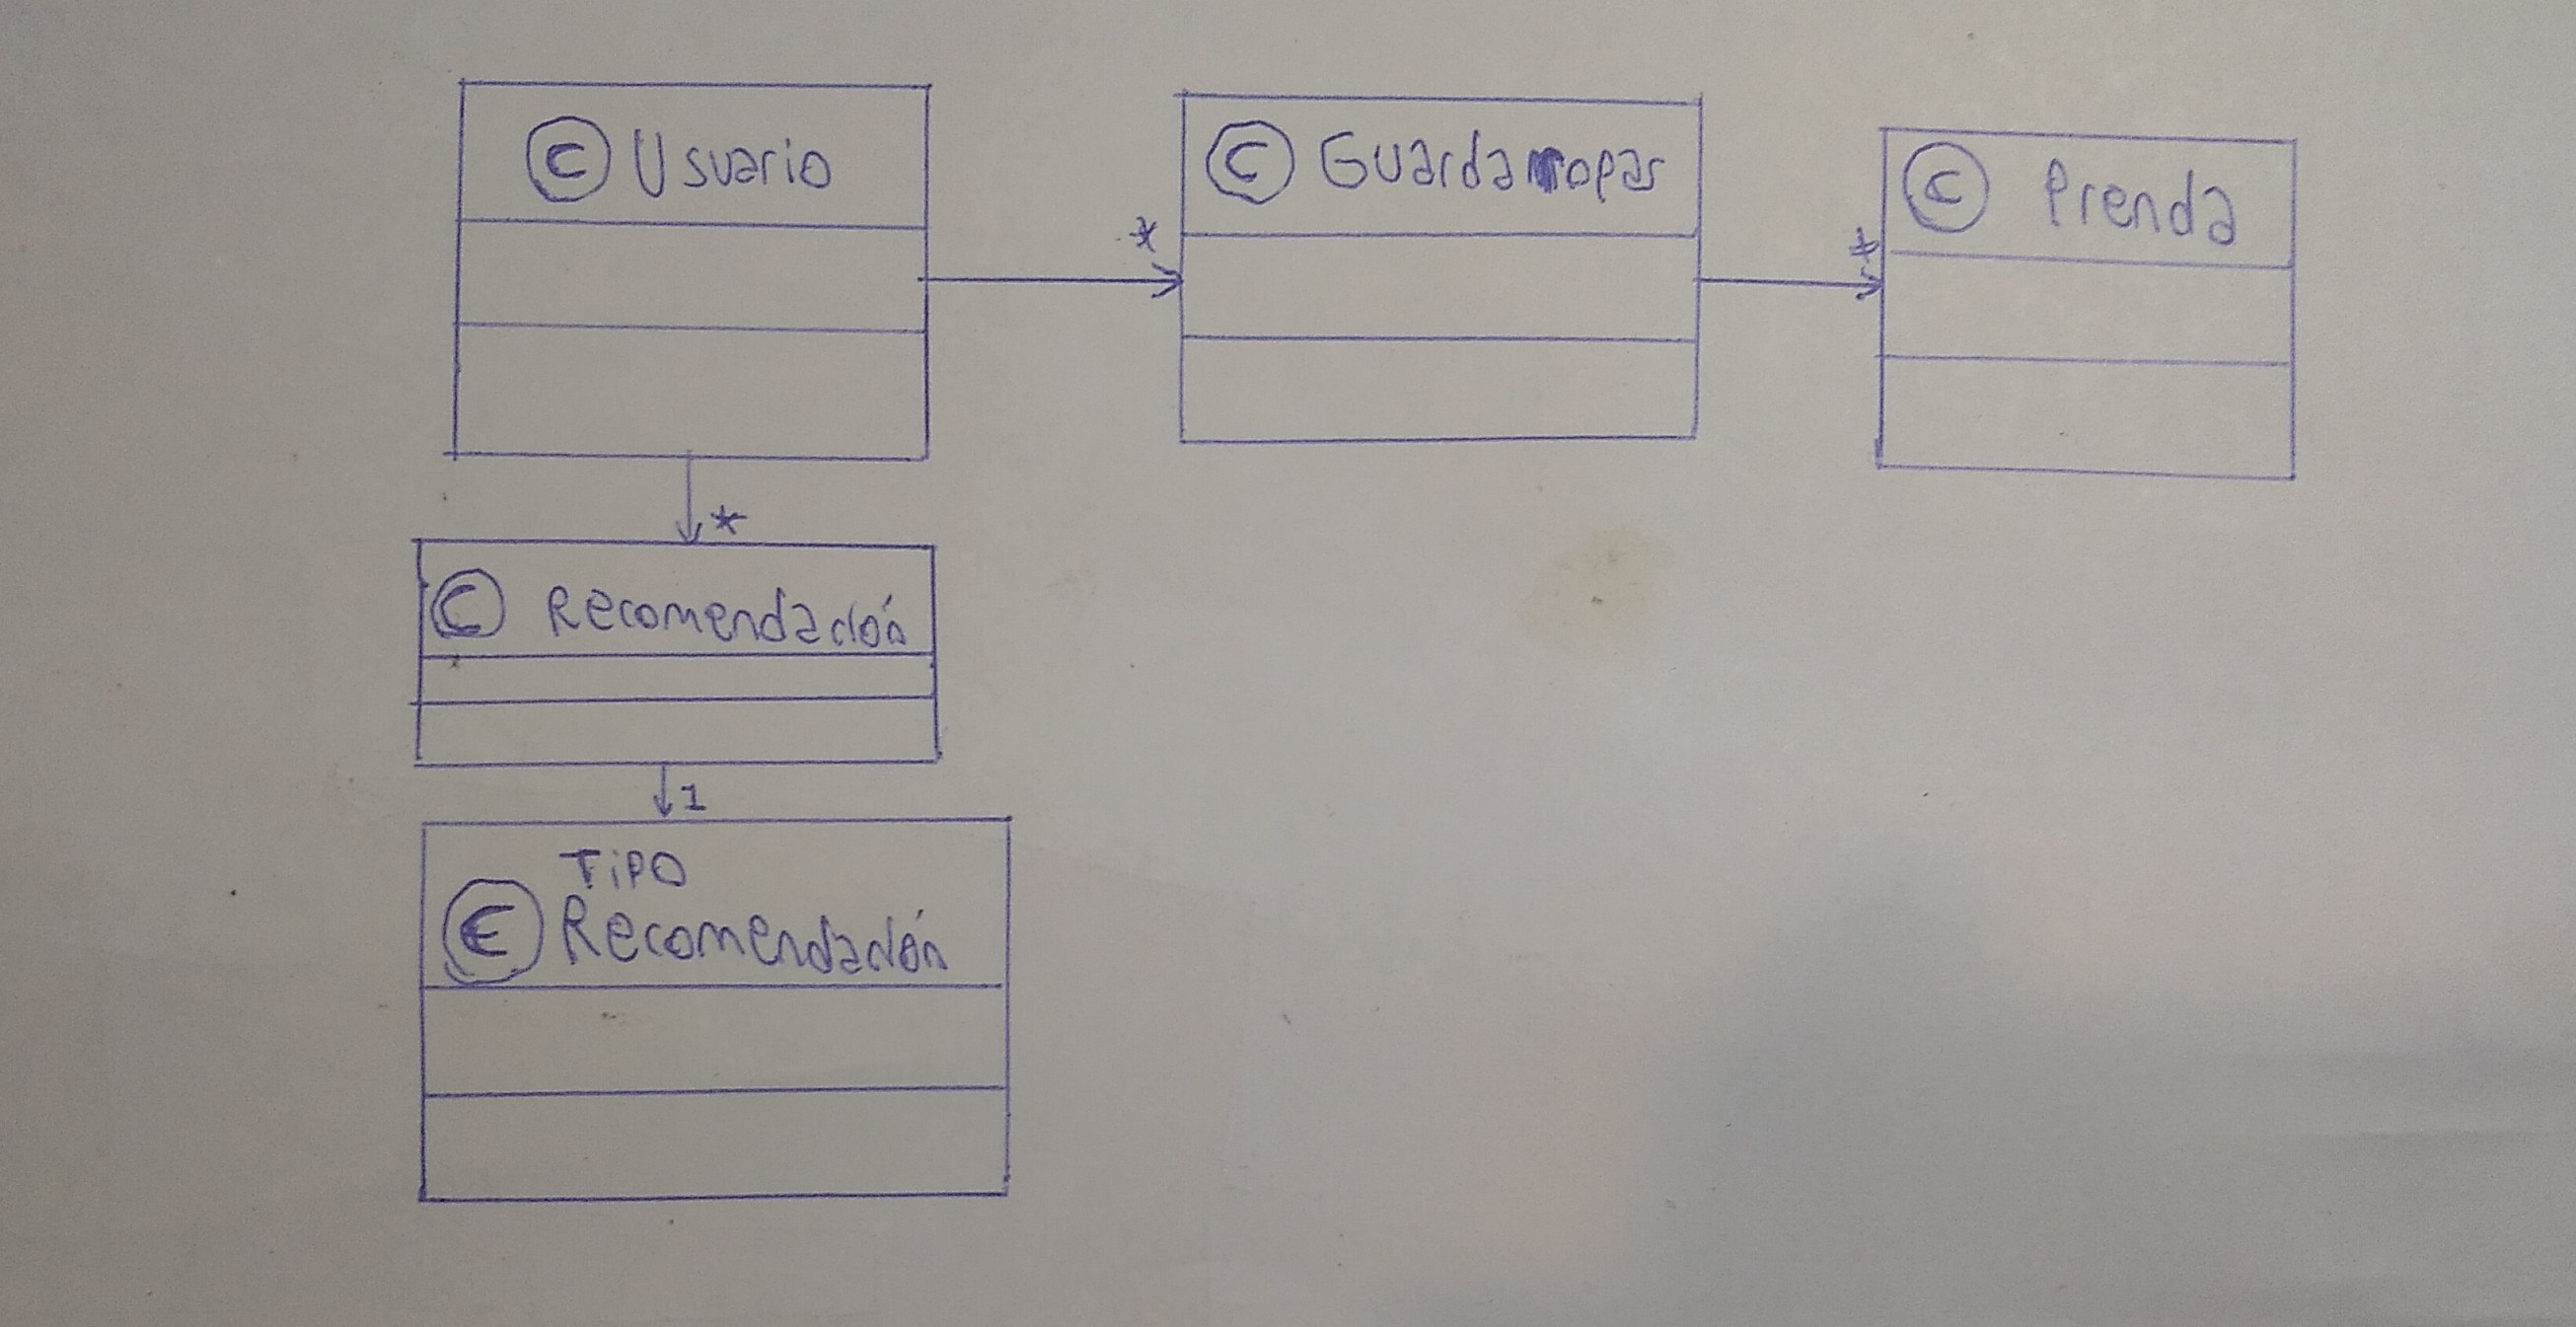 C Usuario
C Guardarropas
C Prenda
*
*
*
C Recomendación
1
TIPO
E Recomendación